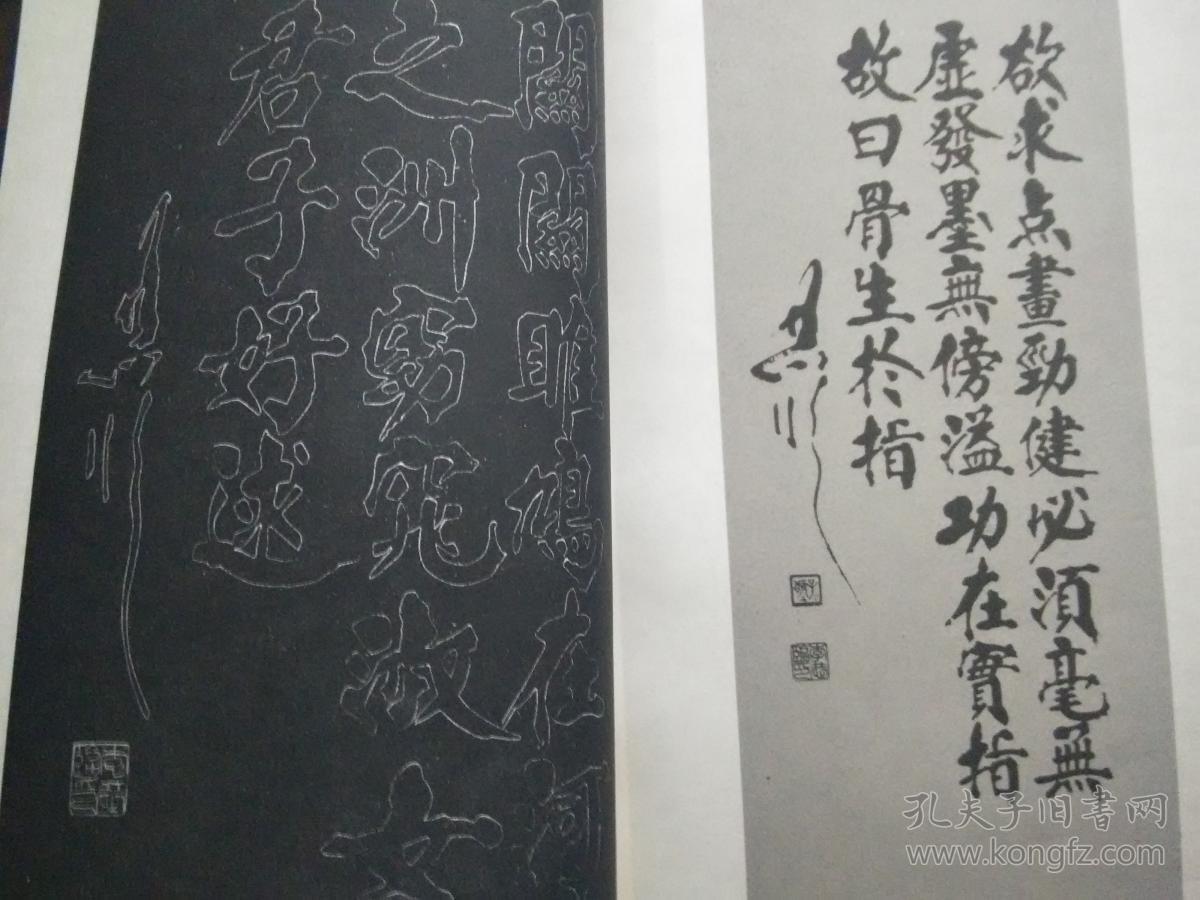 欲求点畫勁健必須毫無
虛發墨無傍溢功在實指
故曰骨生於指
關關雎鳩在河
之洲窈窕淑女
君子好逑
孔夫子旧書网
www.kongfz.com